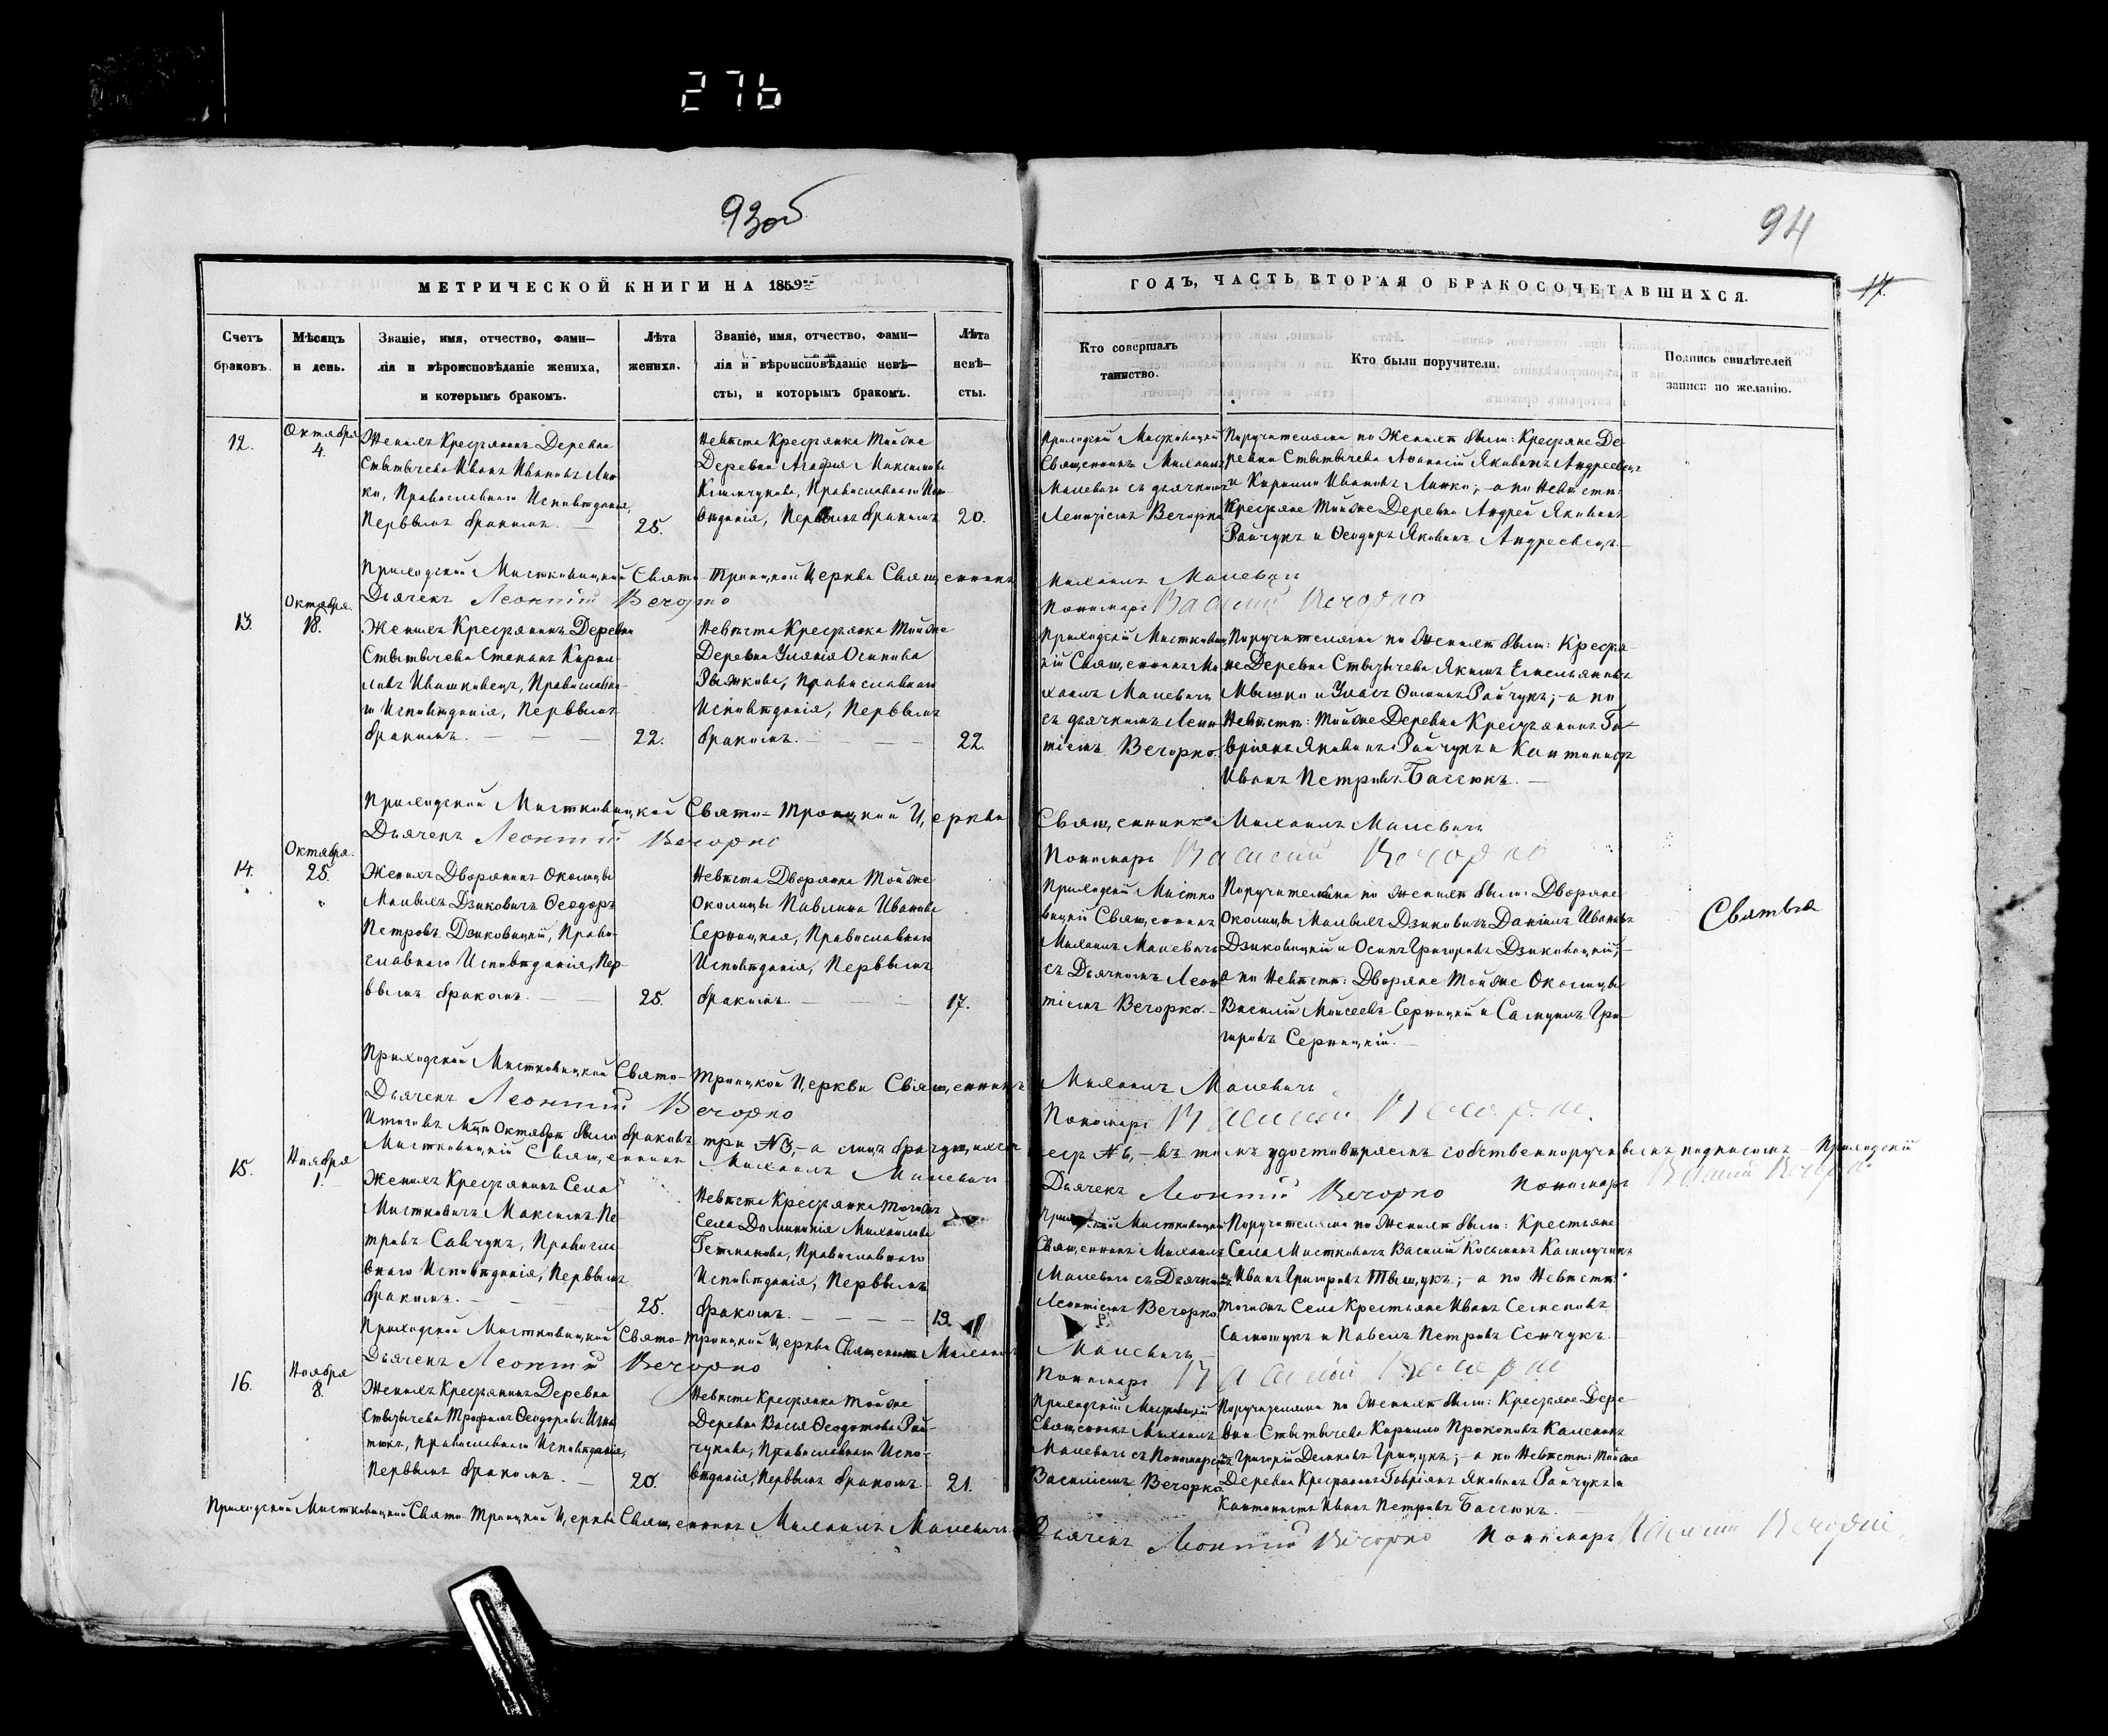 276
93об
94
МЕТРИЧЕСКОЙ КНИГИ НА 1859
ГОДЪ, ЧАСТЬ ВТОРАЯ О БРАКОСОЧЕТАВШИХСЯ.
17.
Счетъ
браковъ.
Мѣсяцъ
и день.
Званіе, имя, отчество, фами—
лія и вѣроисповѣданіе жениха,
и которымъ бракомъ.
Лѣта
жениха.
Званіе, имя, отчество, фами—
лія и вѣроисповѣданіе невѣ—
сты, и которымъ бракомъ.
Лѣта
невѣ—
сты.
Кто совершалъ
таинство.
Кто были поручители.
Подпись свидѣтелей
записи по желанію.
12.
Октября
4.
Женихъ Крестьянинъ Деревни
Стытычева Иванъ Ивановъ Лит
ко, Православнаго Исповѣданія,
Первымъ бракомъ.
25.
Невѣста Крестьянка Той же
Деревни Агафія Максимова
Климчукова, Православнаго Испо-
вѣданія, Первымъ бракомъ
20.
Приходскій Мистковицкій
Священникъ Михаилъ
Малевичъ съ дьячкомъ
Леонтіемъ Вечорко
Поручителями по Женихѣ были: Крестьяне Де-
ревни Стытычева Афанасій Якивовъ Андреевецъ
и Кирилло Ивановъ Литко; - а по Невѣстѣ:
Крестьяне Той же Деревни Андрей Якивовъ
Райчукъ и Ѳеодоръ Якивовъ Андреевецъ.
Приходскій Мистковицкой Свято-Троицкой Церкви Священникъ
Михаилъ Малевичъ
Дьячекъ Леонтій Вечорко
Пономарь Василій Вечорко
13.
Октября.
18.
Женихъ Крестьянинъ Деревни
Стытычева Степанъ Кирил-
ловъ Ивашковецъ, Православна-
го Исповѣданія, Первымъ
бракомъ.
22.
Невѣста Крестьянка Той же
Деревни Уліянія Осипова
Рыжкова, Православнаго
Исповѣданія, Первымъ
бракомъ.
22.
Приходскій Мистковиц
кій Священникъ Ми
хаилъ Малевичъ
съ дьячкомъ Леон
тіемъ Вечорко.
Поручителями по Женихѣ были: Крестья
не Деревни Стытычева Якимъ Емельяновъ
Мышко и Уласъ Осиповъ Райчукъ; - а по
Невѣстѣ: Той же Деревни Крестьянинъ Га-
вріилъ Якивовъ Райчукъ и Кантонистъ
Иванъ Петровъ Басюкъ.
Приходской Мистковицкой Свято-Троицкой Церкви
Священникъ Михаилъ Малевичъ
Дьячекъ Леонтій Вечорко
Пономарь Василій Вечорко
14.
Октября.
25.
Женихъ Дворянинъ Околицы
Малыхъ Дзиковичъ Ѳеодоръ
Петровъ Дзиковицкій, Право-
славнаго Исповѣданія, Пер-
вымъ бракомъ.
25.
Невѣста Дворянка Той же
Околицы Павлина Иванова
Серницкая, Православнаго
Исповѣданія, Первымъ
бракомъ.
17.
Приходскій Мистко
вицкій Священникъ
Михаилъ Малевичъ
съ Дьячкомъ Леон
тіемъ Вечорко.
Поручителями по Женихѣ были: Дворяне
Околицы Малыхъ Дзиковичъ Даніилъ Ивановъ
Дзиковицкій и Осипъ Григоровъ Дзиковицкій;
а по Невѣстѣ: Дворяне Той же Околицы
Василій Моисеевъ Серницкій и Самуилъ Гри-
горовъ Серницкій.
Святыя
Приходской Мистковицкой Свято-Троицкой Церкви Священникъ
Михаилъ Малевичъ
Дьячекъ Леонтій Вечорко
Пономарь Василій Вечорко.
Итого въ Мцѣ Октябрѣ было браковъ три №3, - а лицъ брачущихся
шесть №6, - въ томъ удостовѣряемъ собственноручнымъ подписомъ - Приходскій
Мистковицкій Священникъ Михаилъ Малевичъ
Дьячекъ Леонтій Вечорко Пономарь Василій Вечорко
15.
Ноября
1.
Женихъ Крестьянинъ Села
Мистковичъ Максимъ Пе
тровъ Савчукъ, Правосла
внаго Исповѣданія, Первымъ
бракомъ.
25.
Невѣста Крестьянка того жъ
Села Доминикія Михаилова
Гетманова, Православнаго
Исповѣданія, Первымъ
бракомъ.
19.
Приходскій Мистковицкій
Священникъ Михаилъ
Малевичъ съ Дьячкомъ
Леонтіемъ Вечорко
Поручителями по Женихѣ были: Крестьяне
Села Мистковичъ Василій Козьминъ
и Иванъ Григоровъ Тышукъ; - а по Невѣстѣ
того жъ Села Крестьяне Иванъ Семеновъ
и Павелъ Петровъ Семчукъ.
Приходской Мистковицкой Свято-Троицкой Церкви Священникъ Михаилъ
Малевичъ
Дьячекъ Леонтій Вечорко
Пономарь Василій Вечорко
16.
Ноября
8.
Женихъ Крестьянинъ Деревни
Стытычева Трофимъ Ѳеодоровъ Игна
тюкъ, Православнаго Исповѣданія,
Первымъ бракомъ.
20.
Невѣста Крестьянка Той же
Деревни Васса Ѳеодотова Рай-
чукова, Православнаго Испо-
вѣданія, Первымъ бракомъ
21.
Приходскій Мистковицкій
Священникъ Михаилъ
Малевичъ съ Пономаремъ
Василіемъ Вечорко
Поручителями по Женихѣ были: Крестьяне Дере-
вни Стытычева Кирилло Прокоповъ
и Григорій Грицукъ; - а по Невѣстѣ: Той же
Деревни Крестьянинъ Гавріилъ Якивовъ Райчукъ и
Кантонистъ Иванъ Петровъ Басюкъ.
Приходской Мистковицкой Свято-Троицкой Церкви Священникъ Михаилъ Малевичъ
Дьячекъ Леонтій Вечорко Пономарь Василій Вечорко